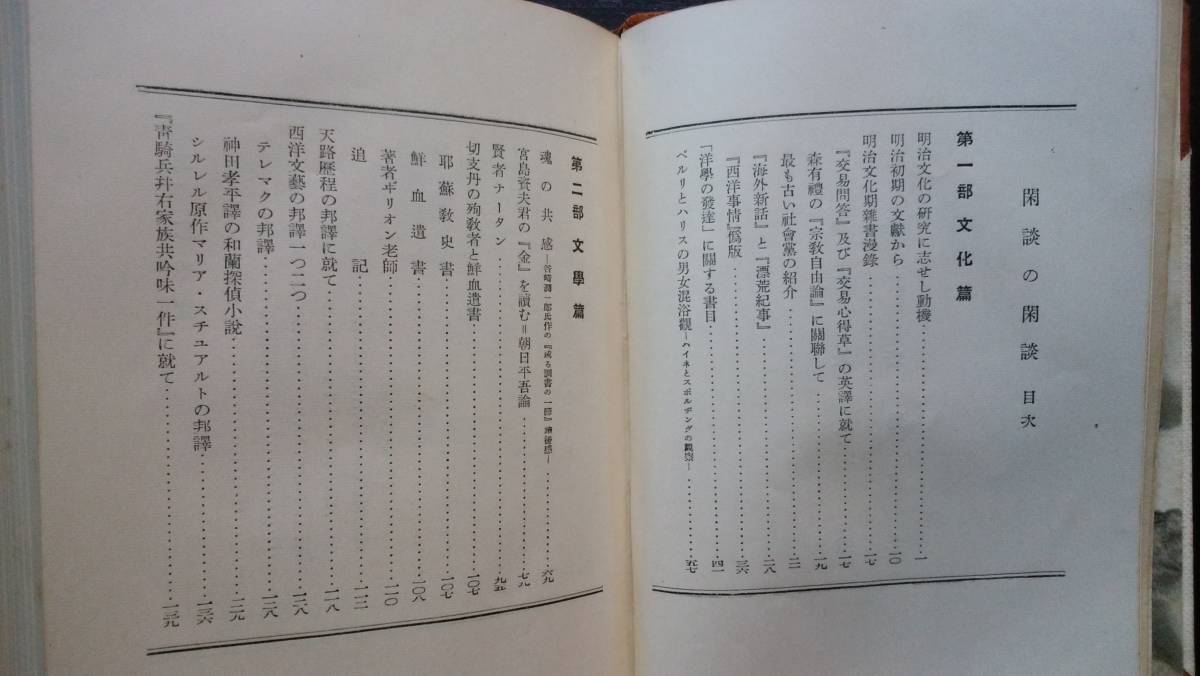 閑談の閑談 目次
第一部 文化篇
明治文化の研究に志せし動機 一
明治初期の文獻から 一〇
明治文化期雜書漫錄 一七
『交易問答』及び『交易心得草』の英譯に就て 一七
森有禮の『宗教自由論』に關聯して 一九
最も古い社會黨の紹介 二一
『海外新話』と『漂荒紀事』 二八
『西洋事情』僞版 三六
「洋學の發達」に關する書目 四一
ペルリとハリスの男女混浴觀―ハイネとスポルヂングの觀察― 五七
第二部 文學篇
魂の共感―谷崎潤一郎氏作の『或る調書の一節』讀後感― 六九
宮島資夫君の『金』を讀む=朝日平吾論 七九
賢者ナータン 九五
切支丹の殉敎者と鮮血遺書 一〇七
耶蘇敎史書 一〇七
鮮血遺書 一〇八
著者ギリオン老師 一一〇
追記 一一二
天路歷程の邦譯に就て 一一八
西洋文藝の邦譯一つ二つ 一二八
テレマクの邦譯 一二八
神田孝平譯の和蘭探偵小說 一二九
シルレル原作マリア・スチュアルトの邦譯 一三六
『青騎兵幷右家族共吟味一件』に就て 一三九